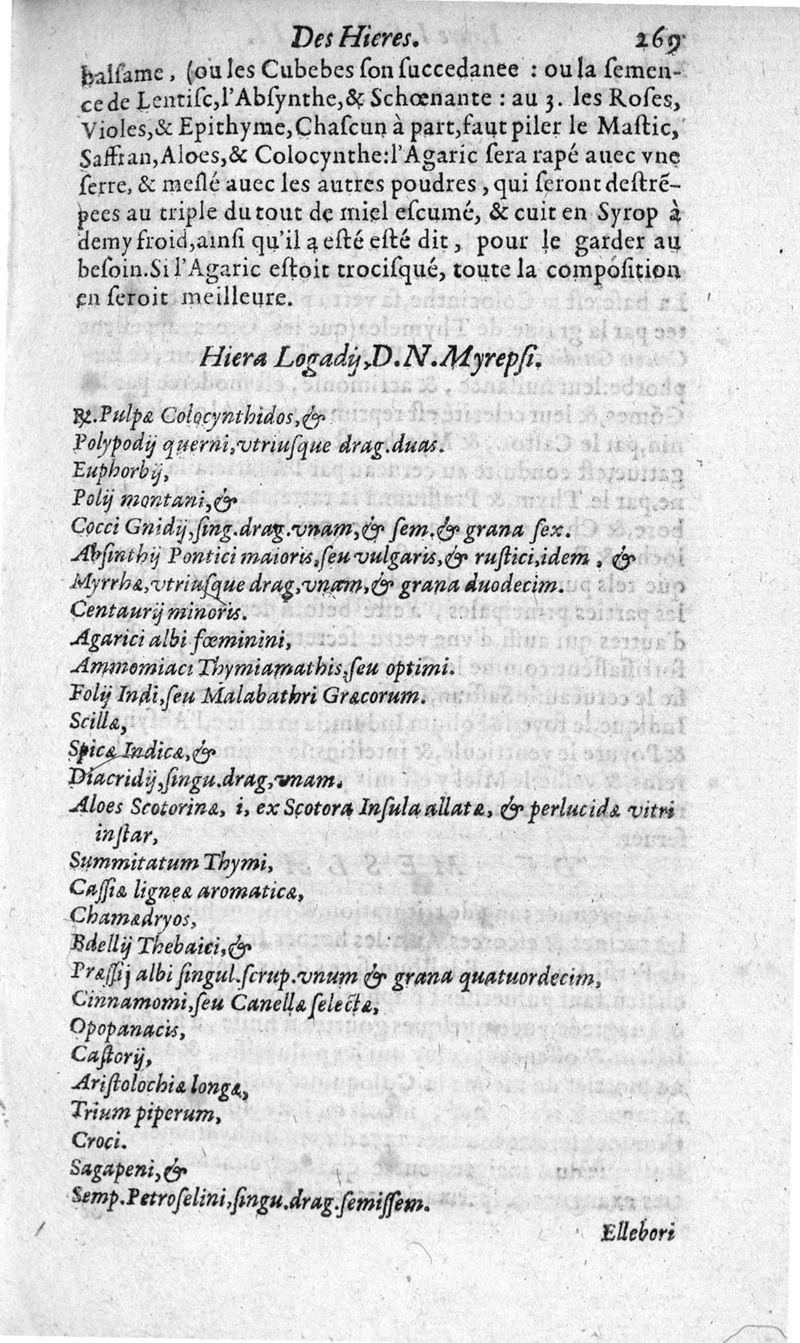 Des Hieres. 269
balsame, (ou les Cubebes son succedanee : ou la semen-
ce de Lentisc,l'Absynthe,& Schœnante : au 3. les Roses,
Violes,& Epithyme,Chascun à part,faut piler le Mastic,
Saffran,Aloes,& Colocynthe:l'Agaric sera rapé auec vne
serre, & meslé auec les autres poudres , qui seront destrẽ-
pees au triple du tout de miel escumé, & cuit en Syrop à
demy froid,ainsi qu'il a esté esté dit , pour le garder au
besoin.Si l'Agaric estoit trocisqué, toute la composition
en seroit meilleure.
Hiera Logadij,D.N.Myrepsi.
℞.Pulpæ Colocynthidos,&
Polypodij querni,vtriusque drag.duas.
Euphorbij,
Polij montani,&
Cocci Gnidij,sing.drag.vnam,& sem.& grana sex.
Absinthij Pontici maioris,seu vulgaris,& rustici,idem , &
Myrrhæ,vtriusque drag,vnam,& grana duodecim.
Centaurij minoris.
Agarici albi fœminini,
Ammomiaci Thymiamathis,seu optimi.
Folij Indi,seu Malabathri Græcorum.
Scillæ,
Spicæ Indicæ,&
Diacridij,singu.drag,vnam.
Aloes Scotorinæ, i, ex Scotora Insula allatæ, & perlucidæ vitri
instar,
Summitatum Thymi,
Cassiæ ligneæ aromaticæ,
Chamædryos,
Bdellij Thebaici,&
Præssij albi singul.scrup.vnum & grana quatuordecim,
Cinnamomi,seu Canellæ selectæ,
Opopanacis,
Castorij,
Aristolochiæ longæ,
Trium piperum,
Croci.
Sagapeni,&
Semp.Petroselini,singu.drag.semissem.
Ellebori